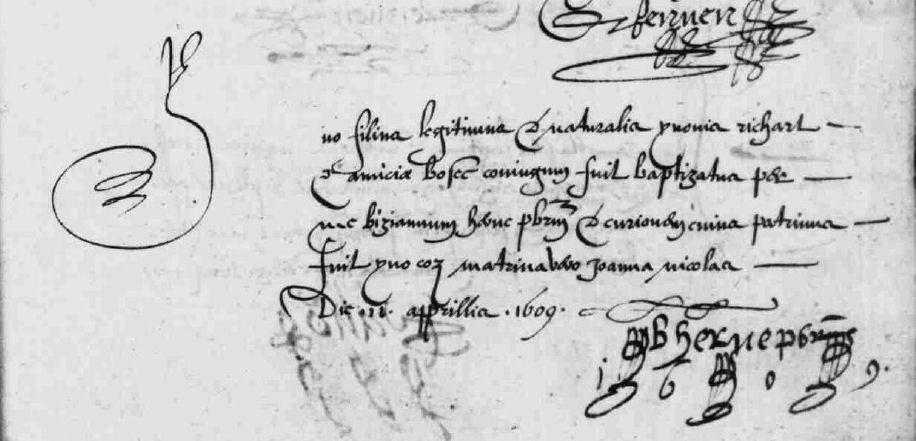 fenuen
yvo filius legitimus & naturalis yvonis richart
& amiciæ bosec coniugum fuit baptizatus per
me bizianum herue pbrm & cuius patrinus
fuit yvo coz matrina vero Joanna nicolas
Die 11 apprillis 1609.
B herue pbr
1 6 0 9.